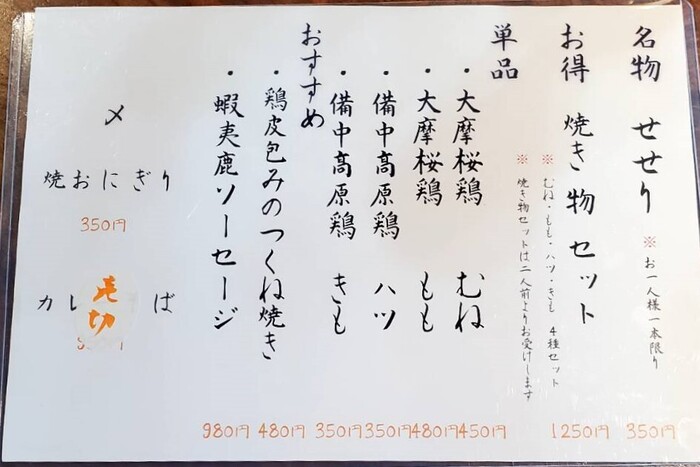 名物 せせり ※お一人様一本限り 350円
お得 焼き物セット 1250円
※むね・もも・ハツ・きも 4種セット
※焼き物セットは二人前よりお受けします
単品
・大摩桜鶏 むね 450円
・大摩桜鶏 もも 480円
・備中高原鶏 ハツ 350円
・備中高原鶏 きも 350円
おすすめ
・鶏皮包みのつくね焼き 480円
・蝦夷鹿ソーセージ 980円
〆
焼おにぎり
350円
カレ ば
売切